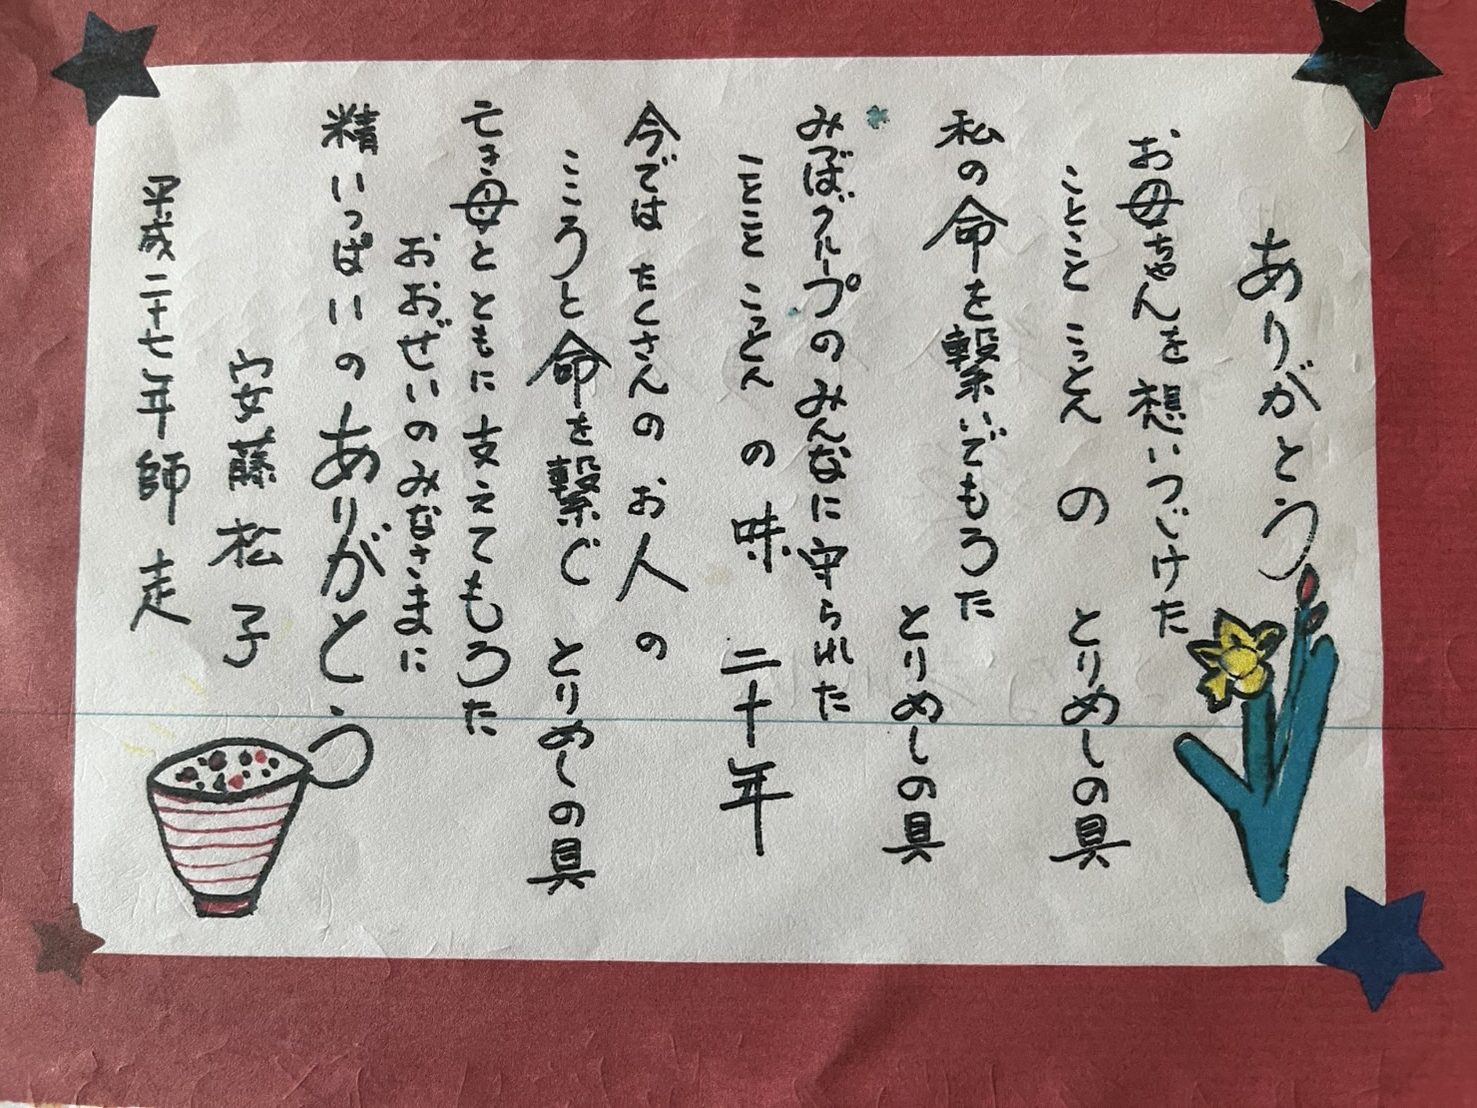 ありがとう
お母ちゃんを想いつづけた
ことこと こっとん の とりめしの具
私の命を繋いでもろた
とりめしの具
みつばグループのみんなに守られた
ことこと こっとん の味 二十年
今では たくさんの お人の
こころと命を繋ぐ とりめしの具
亡き母とともに支えてもろうた
おおぜいのみなさまに
精いっぱいの ありがとう
安藤松子
平成二十七年師走